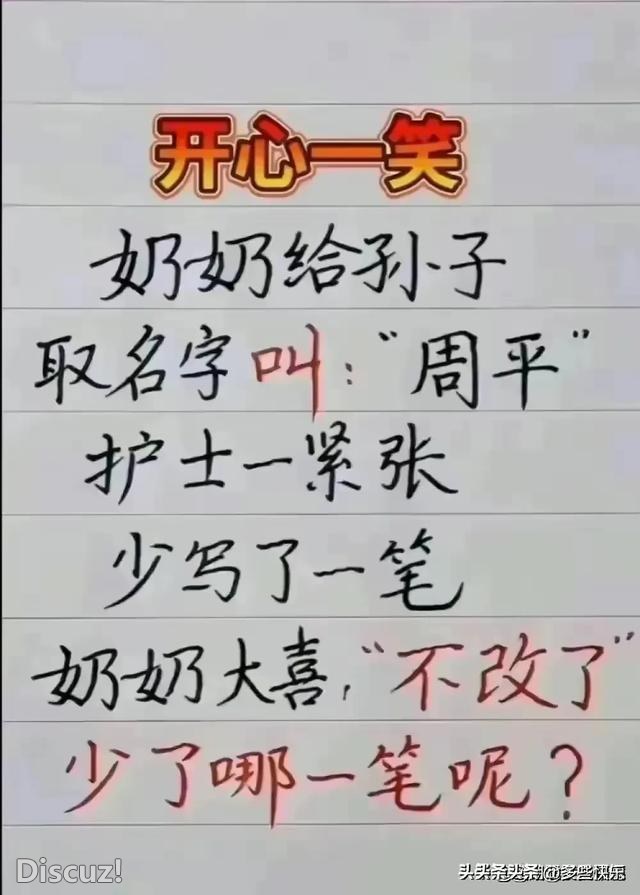 开心一笑
奶奶给孙子
取名字叫:“周平”
护士一紧张
少写了一笔
奶奶大喜,“不改了”
少了哪一笔呢?
Discuz!